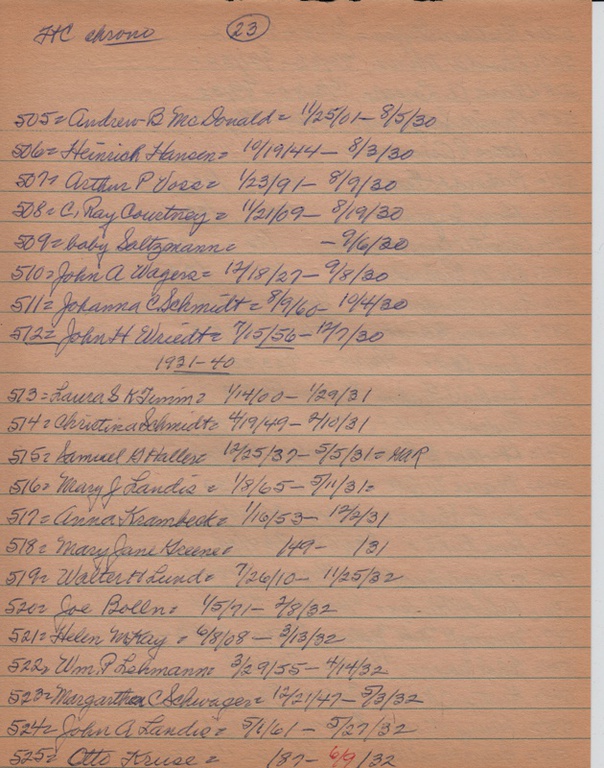 HC chrono 23
505 = Andrew B McDonald = 11/25/01 - 8/5/30
506 = Heinrich Hansen = 10/19/44 - 8/3/30
507 = Arthur P Voss = 1/23/91 - 8/9/30
508 = C. Ray Courtney = 11/21/09 - 8/19/30
509 = baby Saltzmann = - 9/6/30
510 = John A Wagers = 12/18/27 - 9/8/30
511 = Johanna C Schmidt = 8/9/60 - 10/4/30
512 = John H Wriedt = 7/15/56 - 12/7/30
1931-40
513 = Laura S K Timm = 1/14/00 - 1/29/31
514 = Christina Schmidt = 4/19/49 - 2/10/31
515 = Samuel G Haller = 12/25/37 - 5/5/31 =
516 = Mary J Landis = 1/8/65 - 5/11/31 =
517 = Anna Krambeck = 1/16/53 - 12/2/31
518 = Mary Jane Greene = /49 - /31
519 = Walter H Lund = 7/26/10 - 11/25/32
520 = Joe Bolln = 1/5/71 - 2/8/32
521 = Helen McKay = 6/8/08 - 3/13/32
522 = Wm. P Lehmann = 3/29/55 - 4/14/32
523 = Margarthea C Schwager = 12/21/47 - 5/3/32
524 = John A Landis = 5/1/61 - 5/27/32
525 = Otto Kruse = /87 - 6/9/32